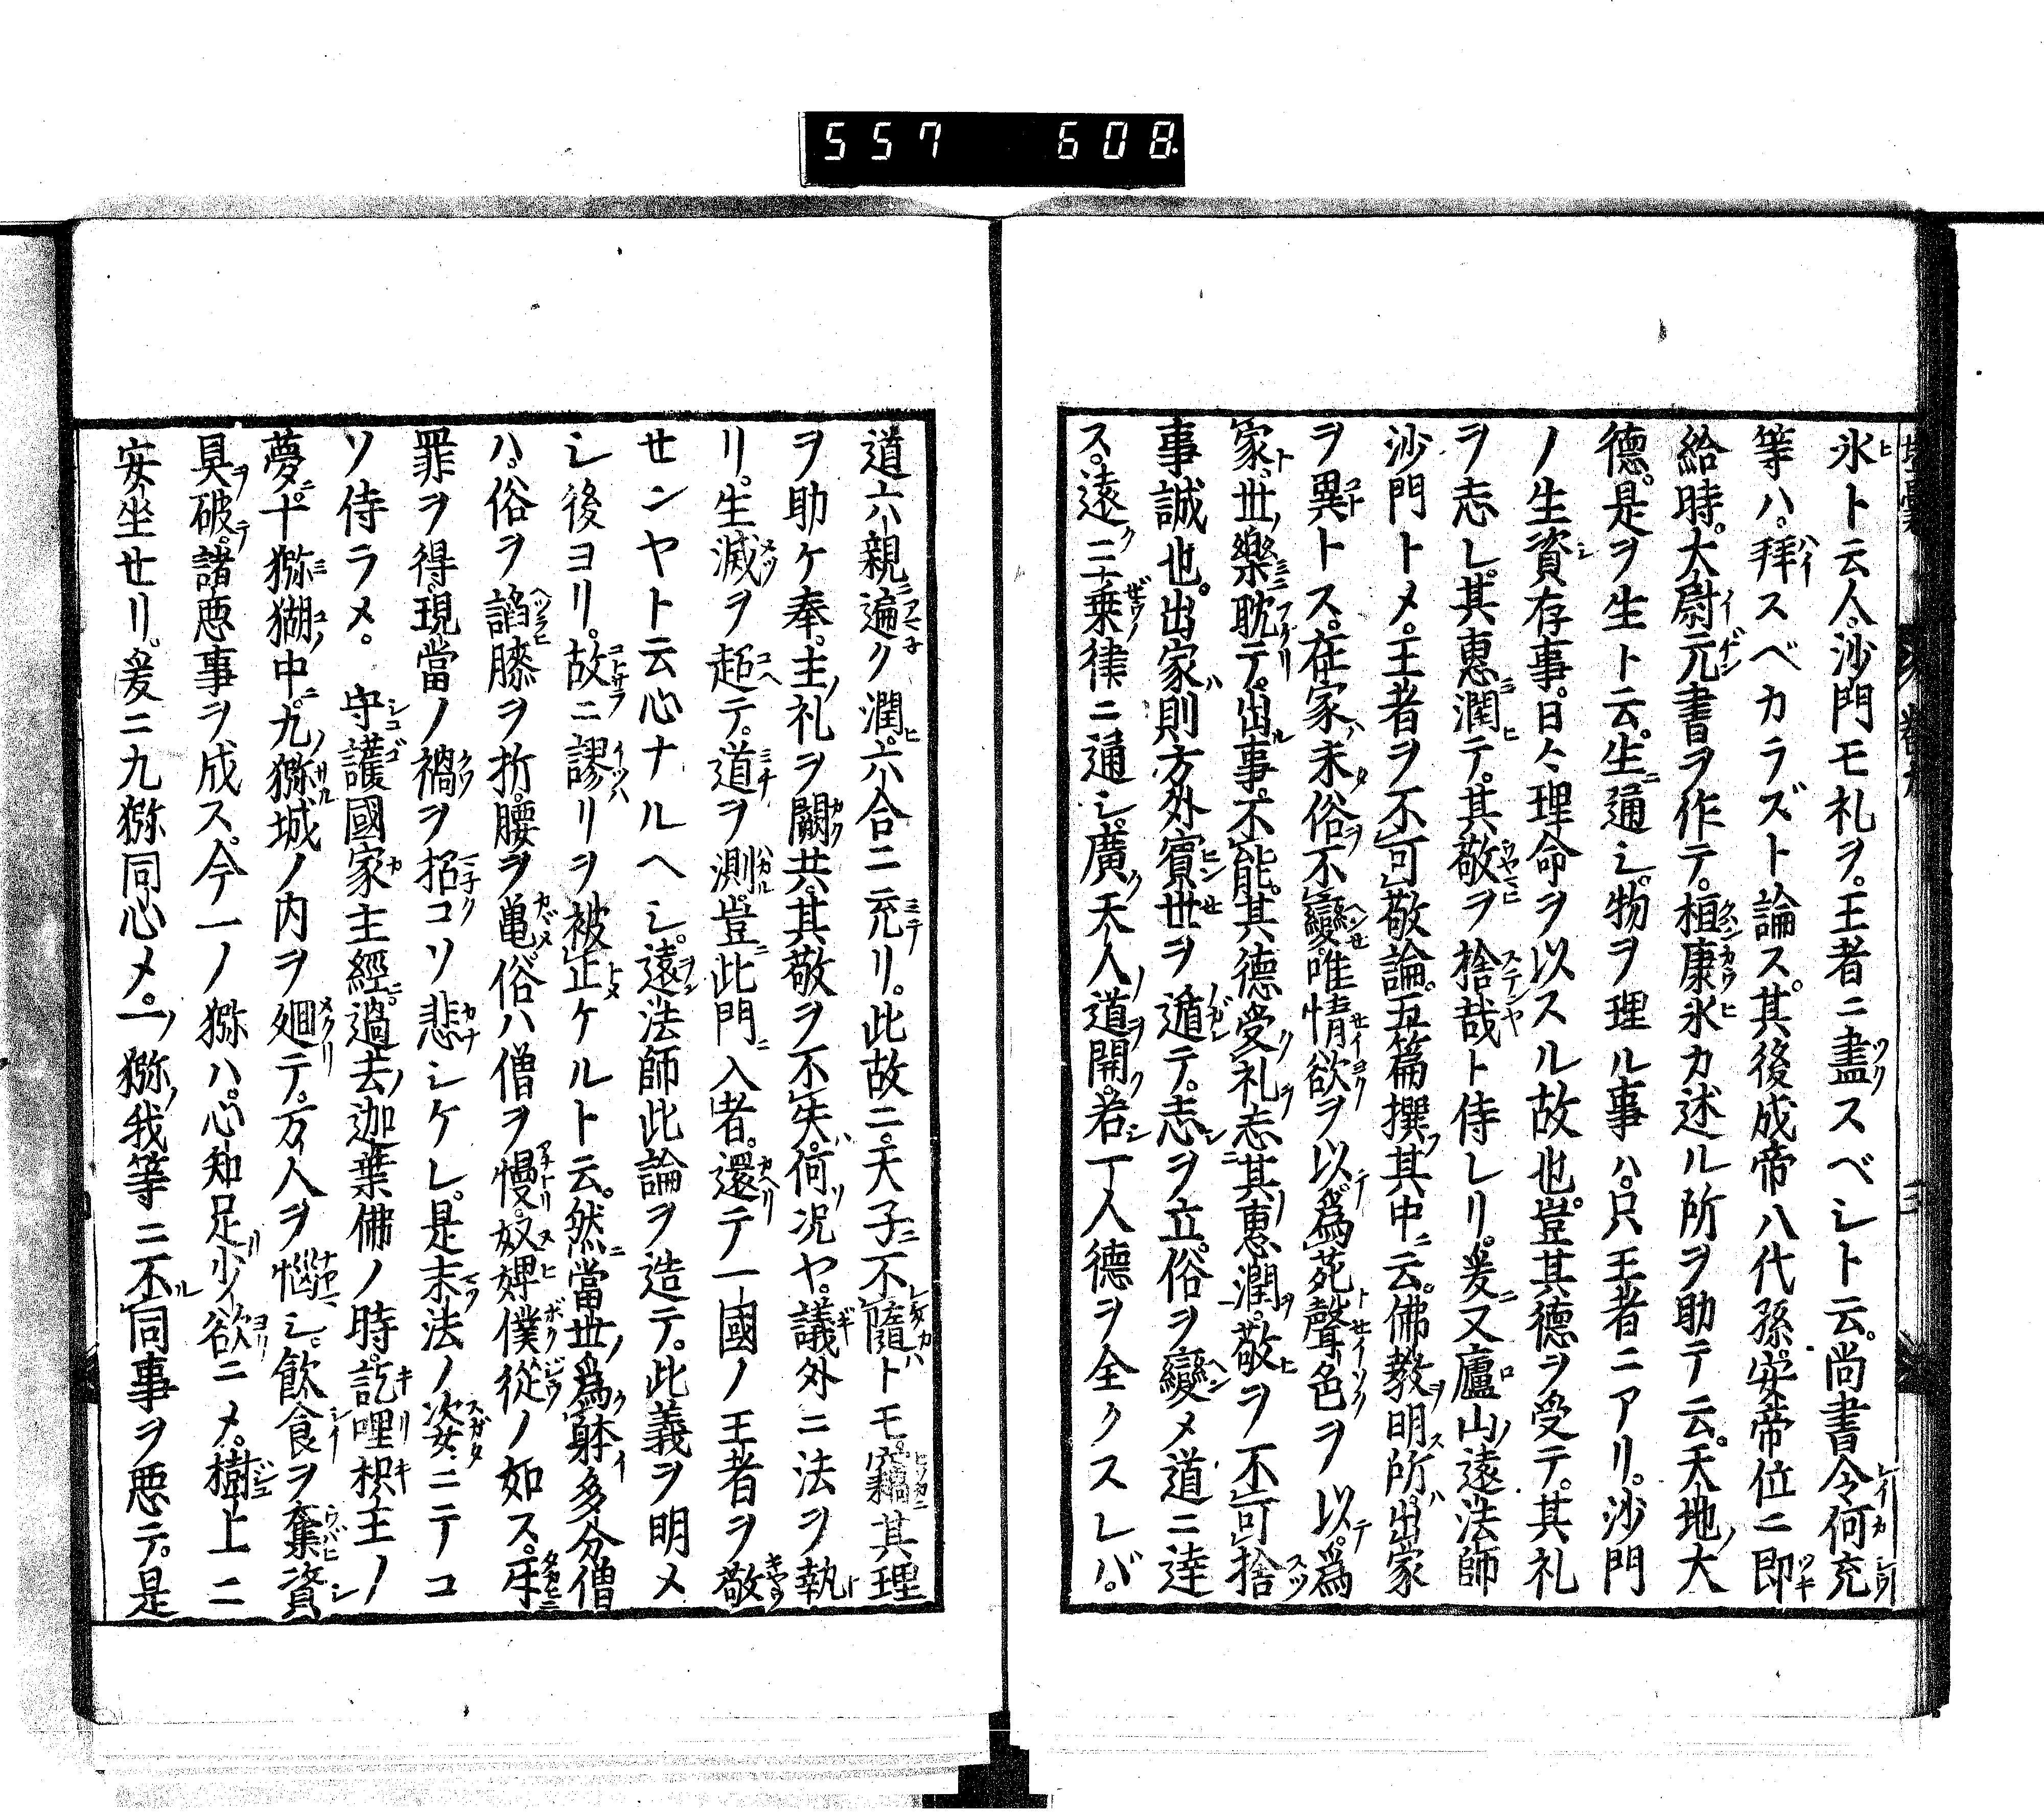 557 608
氷ト云人。沙門モ礼ヲ。王者ニ盡スベシト云。尚書令何充
等ハ。拜スベカラズト論ス。其後成帝八代孫。安帝位ニ即
給時。大尉元書ヲ作テ。桓康氷カ述ル所ヲ助テ云。天地ノ大
德。是ヲ生ト云。生ニ通シ。物ヲ理ル事ハ。只王者ニアリ。沙門
ノ生資存事。日々理命ヲ以スル故也。豈其德ヲ受テ。其礼
ヲ志レ。其惠ニ潤テ。其敬ヲ捨哉ト侍レリ。爰ニ又廬山ノ遠法師
沙門トメ。王者ヲ不可敬論。五篇撰。其中ニ云。佛教ヲ明ス所ハ。出家
ヲ異トス。在家ハ未タ俗ヲ不變。唯情欲ヲ以テ爲苑ト聲色ヲ以テ。爲
家ト。世ノ樂ニ耽テ。出ル事。不能。其德受ク礼ヲ志ニ其惠ノ潤ヲ。敬ヲ不可捨
事誠也。出家ハ則方外賓世ヲ遁テ。志シヲ立。俗ヲ變メ道ニ達
ス。遠ク三乗ノ律ニ通シ。廣ク天人ノ道ヲ開ク。若シ丁人德ヲ全クスレバ。
道六親ニ遍ク潤ヒ。六合ニ充リ。此故ニ。天子ニ不隨トモ。竊其理
ヲ助ケ奉。主ノ礼ヲ闕共。其敬ヲ不失。何ソ况ヤ。議外ニ法ヲ執ト
リ。生滅ヲ超テ。道ヲ測。豈ニ此門ニ入者。還テ一國ノ王者ヲ敬
せンヤト云心ナルヘシ。遠法師此論ヲ造テ。此義ヲ明メ
シ後ヨリ。故ニ謬リヲ被正ケルト云。然ニ當世ノ爲躰多分僧
ハ。俗ヲ諂膝ヲ折。腰ヲ亀。俗ハ僧ヲ慢。奴婢僕從ノ如ス。牙
罪ヲ得。現當ノ禍ヲ招コソ悲シケレ。是末法ノ姿ニテコ
ソ侍ラメ。 守護國家主經ニ。過去ノ迦葉佛ノ時。訖哩枳主ノ
夢ニ十獼猴ノ中ニ。九ノ獼城ノ内ヲ廻テ。万人ヲ惱シ。飮食ヲ奪資
具ヲ破テ。諸悪事ヲ成ス。今一ノ獼ハ。心知足少欲ニメ。樹上ニ
安坐せリ。爰ニ九獼同心メ。一ノ獼ノ我等ニ不同事ヲ悪テ。是